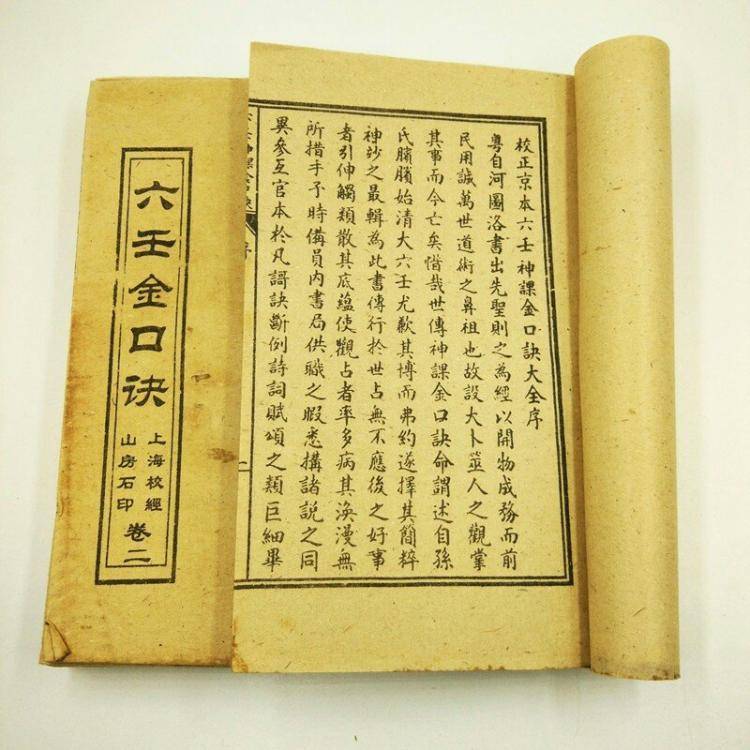 校正京本六壬神課金口訣大全序
粵自河圖洛書出先聖則之為經以開物成務而前
民用誠萬世道術之鼻祖也故設大卜筮人之觀掌
其事而今亡矣惜哉世傳神課金口訣命謂述自孫
氏臏臏始清大六壬尤歉其博而弗約遂擇其簡粹
神妙之最輯為此書傳行於世占無不應後之好事
者引伸觸類散其底蘊使觀占者率多病其渙漫無
所措手予時備員內書局供職之暇悉搆諸說之同
異參互官本於凡謌訣斷例詩詞賦頌之類巨細畢
序
二
六壬金口诀
上海校經
山房石印
卷二